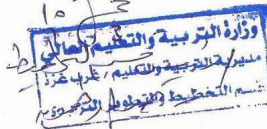 وزارة التربية والتعليم العالي
مديرية التربية والتعليم / غرب غزة
قسم التخطيط والتطوير التربوي